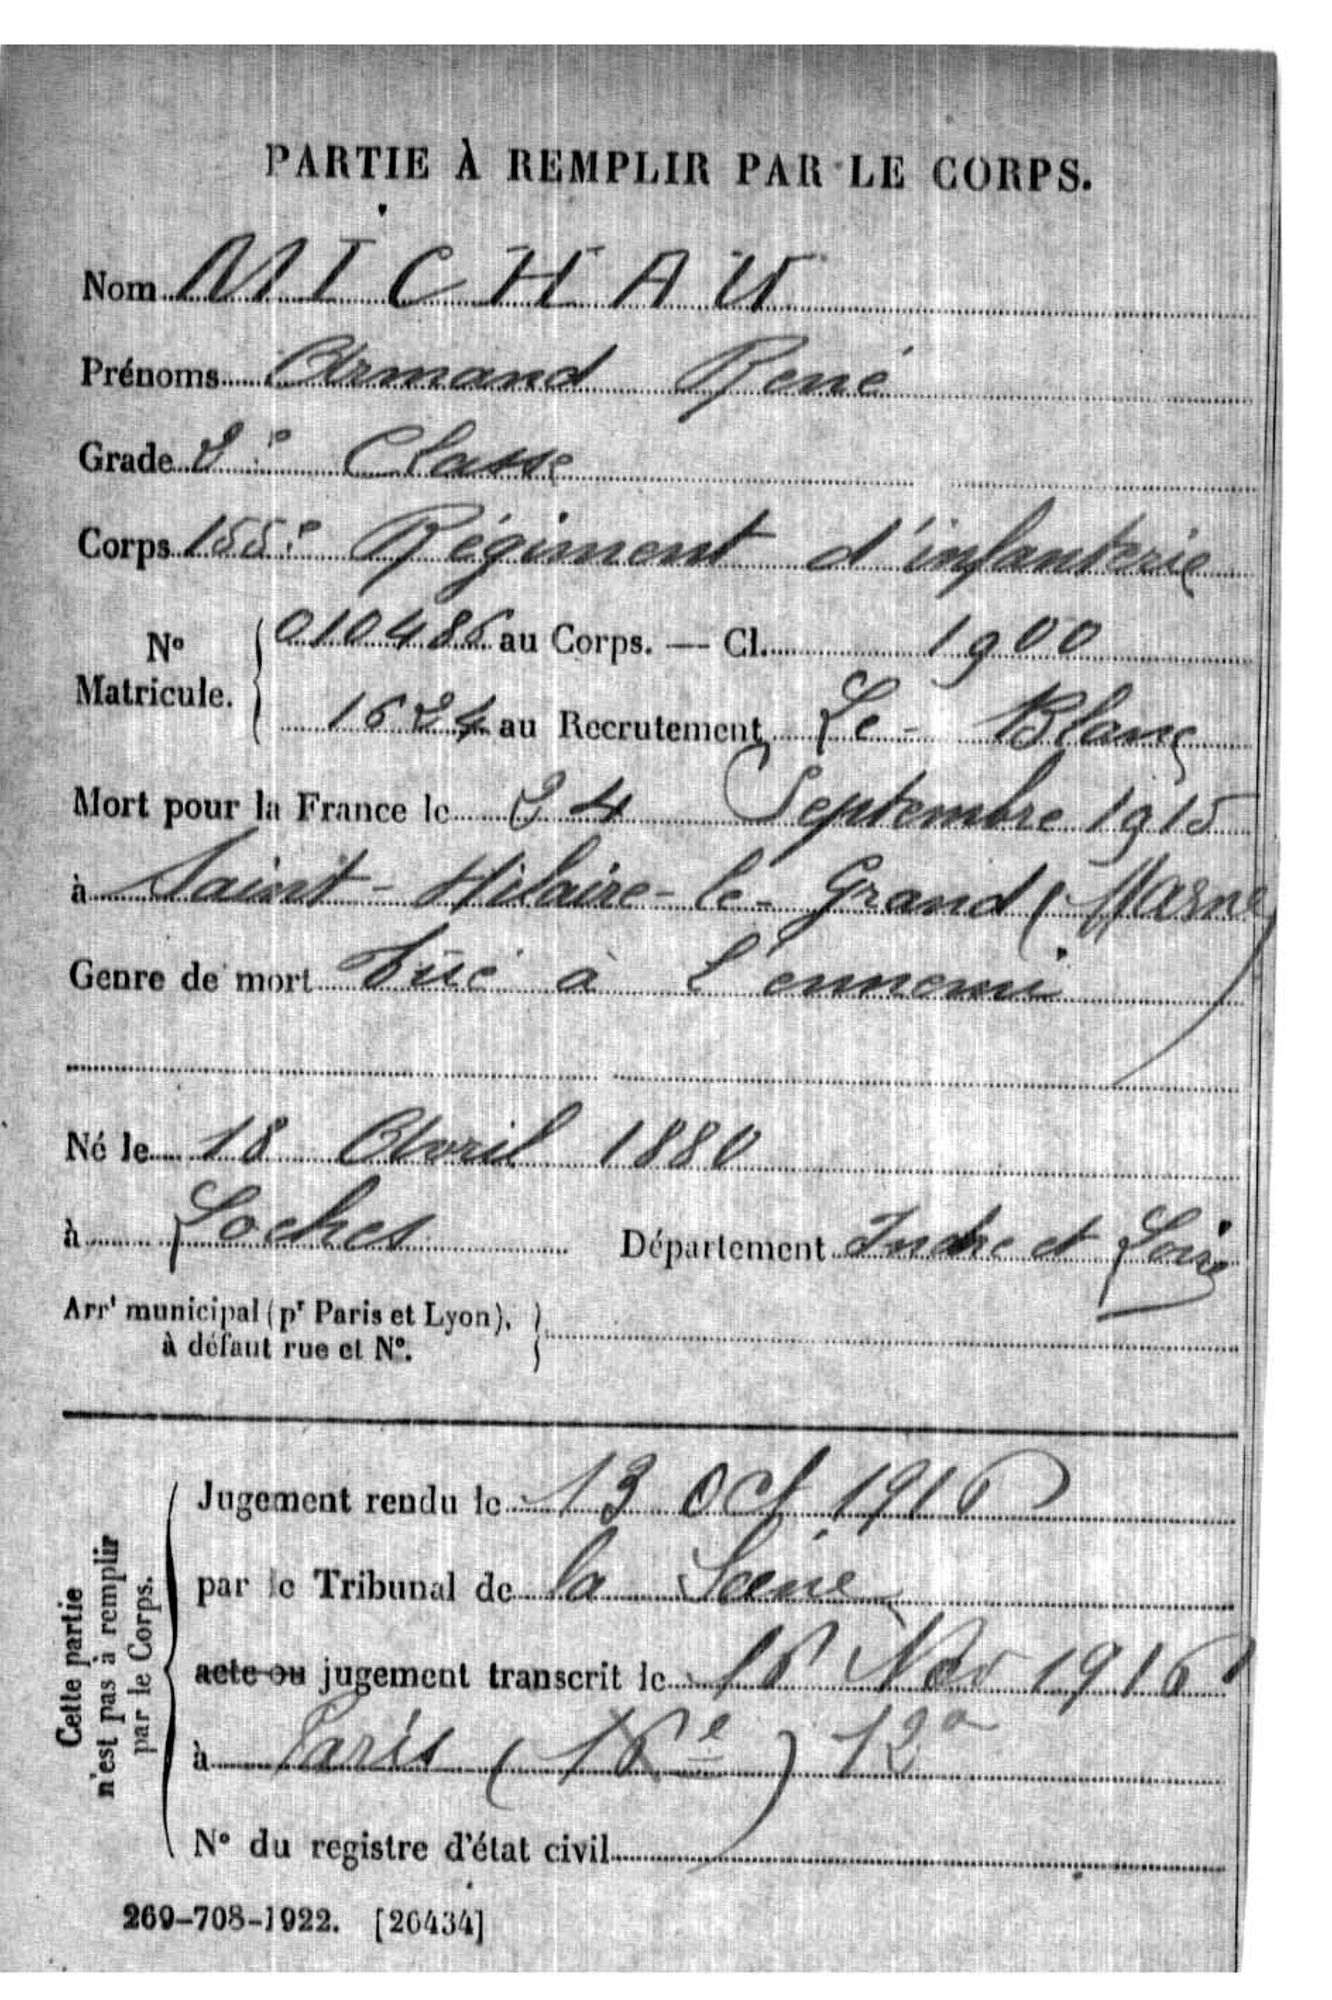 PARTIE À REMPLIR PAR LE CORPS.
Nom MICHAU
Prénoms Armand René
Grade 2e Classe
Corps 155e Régiment d'infanterie
No Matricule. 010486 au Corps. — Cl. 1900
1624 au Recrutement Le-Blanc
Mort pour la France le 24 Septembre 1915
à Saint-Hilaire-le-Grand (Marne)
Genre de mort Tué à l'ennemi
Né le 18 Avril 1880
à Loches Département Indre et Loire
Arrt municipal (pr Paris et Lyon),
à défaut rue et No.
Cette partie
n'est pas à remplir
par le Corps.
Jugement rendu le 13 Oct 1916
par le Tribunal de la Seine
acte ou jugement transcrit le 16 Nov 1916
à Paris (16e) 12e
No du registre d'état civil
269-708-1922. [26434]